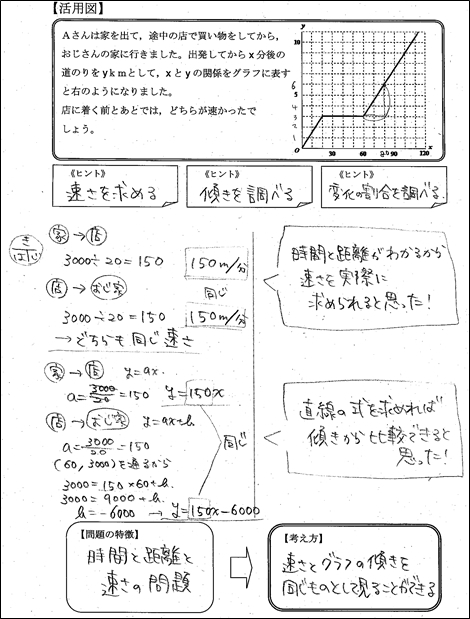 【活用図】
Aさんは家を出て，途中の店で買い物をしてから，
おじさんの家に行きました。出発してからx分後の
道のりをykmとして，xとyの関係をグラフに表す
と右のようになりました。
店に着く前とあとでは，どちらが速かったで
しょう。
y
10
6
5
4
3
2
1
0
30
60
80
90
120
x
《ヒント》
速さを求める
《ヒント》
傾きを調べる
《ヒント》
変化の割合を調べる.
家 → 店
3000÷20=150
150m/分
店 → おじ家
同じ
3000÷20=150
150m/分
→どちらも同じ速さ
時間と距離がわかるから
速さを実際に
求められると思った!
家 → 店 y=ax.
a=3000/20=150 y=150x
店 → おじ家 y=ax+b
同じ
a=3000/20=150
(60,3000)を通るから
3000=150×60+b.
3000=9000+b.
b=-6000 → y=150x-6000
直線の式を求めれば
傾きから比較できると
思った!
【問題の特徴】
時間と距離と
速さの問題
【考え方】
速さとグラフの傾きを
同じものとして見ることができる